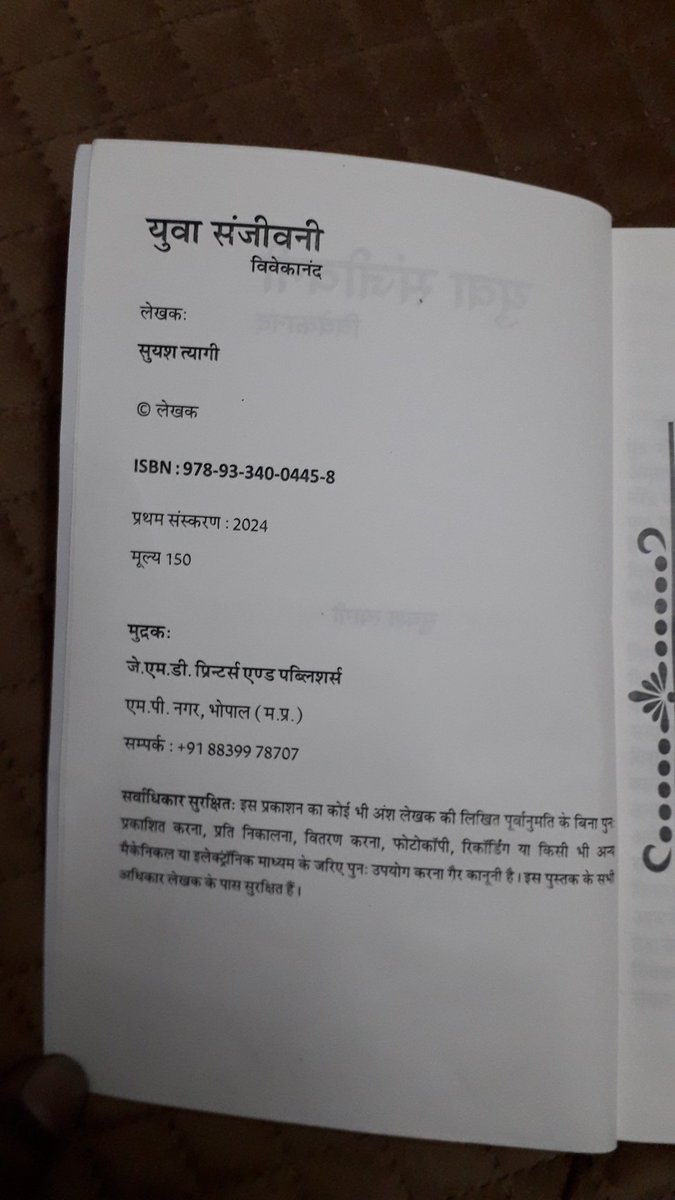 युवा संजीवनी
विवेकानंद
लेखकः
सुयश त्यागी
© लेखक
ISBN : 978-93-340-0445-8
प्रथम संस्करण : 2024
मूल्य 150
मुद्रकः
जे.एम.डी. प्रिन्टर्स एण्ड पब्लिशर्स
एम.पी. नगर, भोपाल ( म.प्र. )
सम्पर्क : +91 88399 78707
सर्वाधिकार सुरक्षितः इस प्रकाशन का कोई भी अंश लेखक की लिखित पूर्वानुमति के बिना पुनः
प्रकाशित करना, प्रति निकालना, वितरण करना, फोटोकॉपी, रिकॉर्डिंग या किसी भी अन्य
मैकेनिकल या इलेक्ट्रॉनिक माध्यम के जरिए पुनः उपयोग करना गैर कानूनी है। इस पुस्तक के सभी
अधिकार लेखक के पास सुरक्षित हैं।